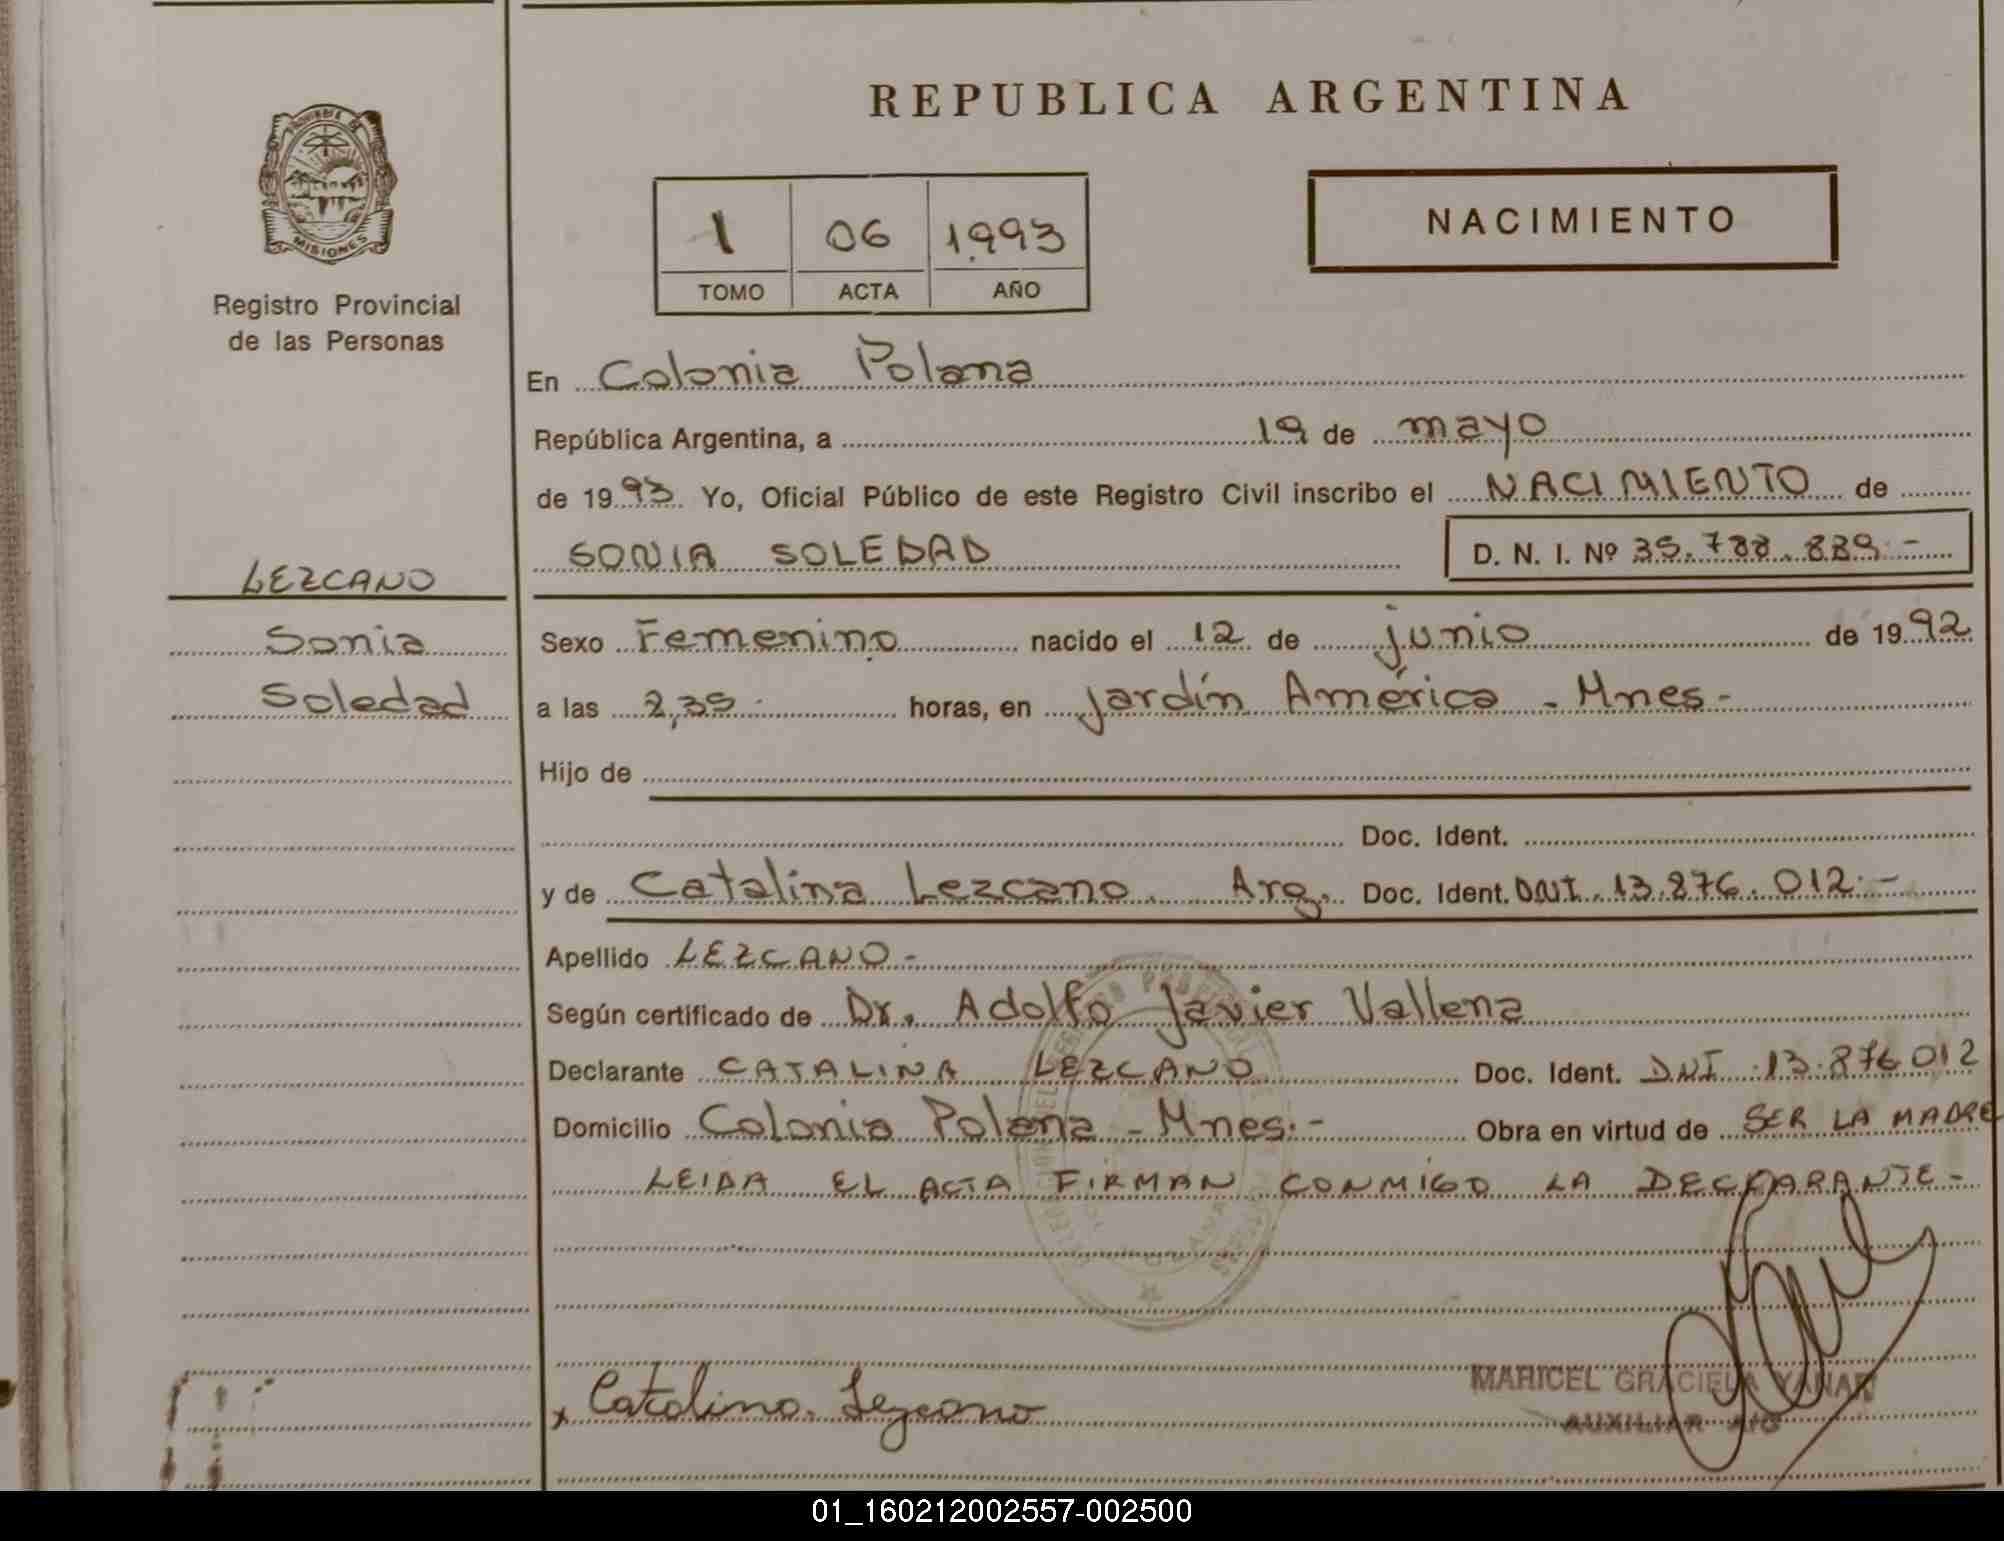 REPUBLICA ARGENTINA
PROVINCIA DE
MISIONES
Registro Provincial
de las Personas
1 06 1.993
TOMO ACTA AÑO
NACIMIENTO
En Colonia Polana
República Argentina, a 19 de mayo
de 1993. Yo, Oficial Público de este Registro Civil inscribo el NACIMIENTO de
SONIA SOLEDAD D. N. I. Nº 35.788.889.-
LEZCANO
Sonia
Soledad
Sexo Femenino nacido el 12 de junio de 1992
a las 2,35 horas, en Jardín América - Mnes-
Hijo de
Doc. Ident.
y de Catalina Lezcano. Arg. Doc. Ident. DNI. 13.876.012.-
Apellido LEZCANO-
Según certificado de Dr. Adolfo Javier Vallena
Declarante CATALINA LEZCANO Doc. Ident. DNI 13.876012
Domicilio Colonia Polana - Mnes.- Obra en virtud de SER LA MADRE
LEIDA EL ACTA FIRMAN CONMIGO LA DECLARANTE-
x Catalino. Lezcano
MARICEL GRACIELA YANAR
AUXILIAR A/C
01_160212002557-002500